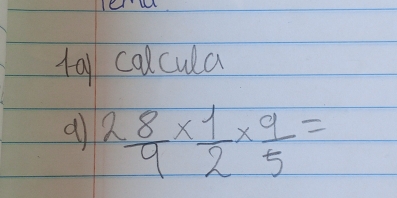 Tema
1a) calcula
a) 2 8/9 × 1/2 × 9/5 =